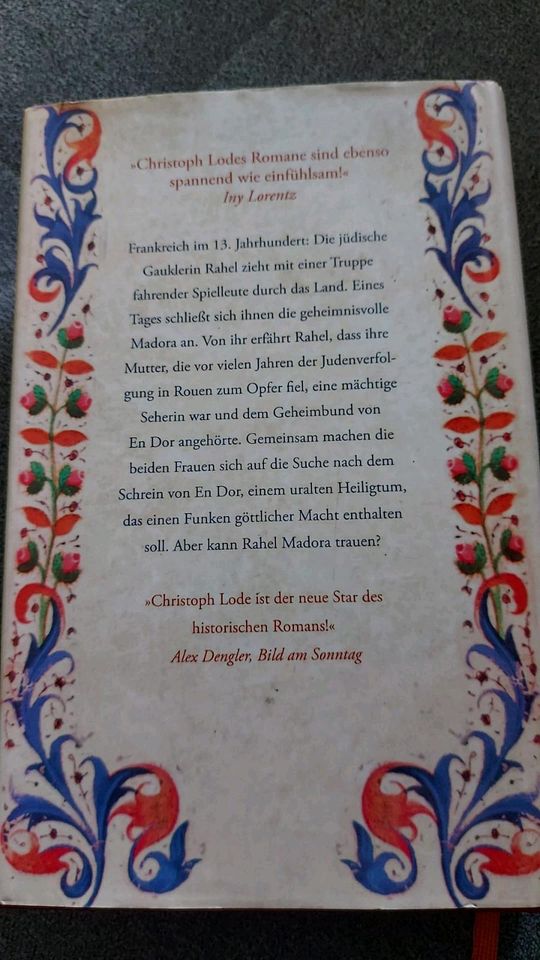 »Christoph Lodes Romane sind ebenso
spannend wie einfühlsam!«
Iny Lorentz
Frankreich im 13. Jahrhundert: Die jüdische
Gauklerin Rahel zieht mit einer Truppe
fahrender Spielleute durch das Land. Eines
Tages schließt sich ihnen die geheimnisvolle
Madora an. Von ihr erfährt Rahel, dass ihre
Mutter, die vor vielen Jahren der Judenverfol-
gung in Rouen zum Opfer fiel, eine mächtige
Seherin war und dem Geheimbund von
En Dor angehörte. Gemeinsam machen die
beiden Frauen sich auf die Suche nach dem
Schrein von En Dor, einem uralten Heiligtum,
das einen Funken göttlicher Macht enthalten
soll. Aber kann Rahel Madora trauen?
»Christoph Lode ist der neue Star des
historischen Romans!«
Alex Dengler, Bild am Sonntag